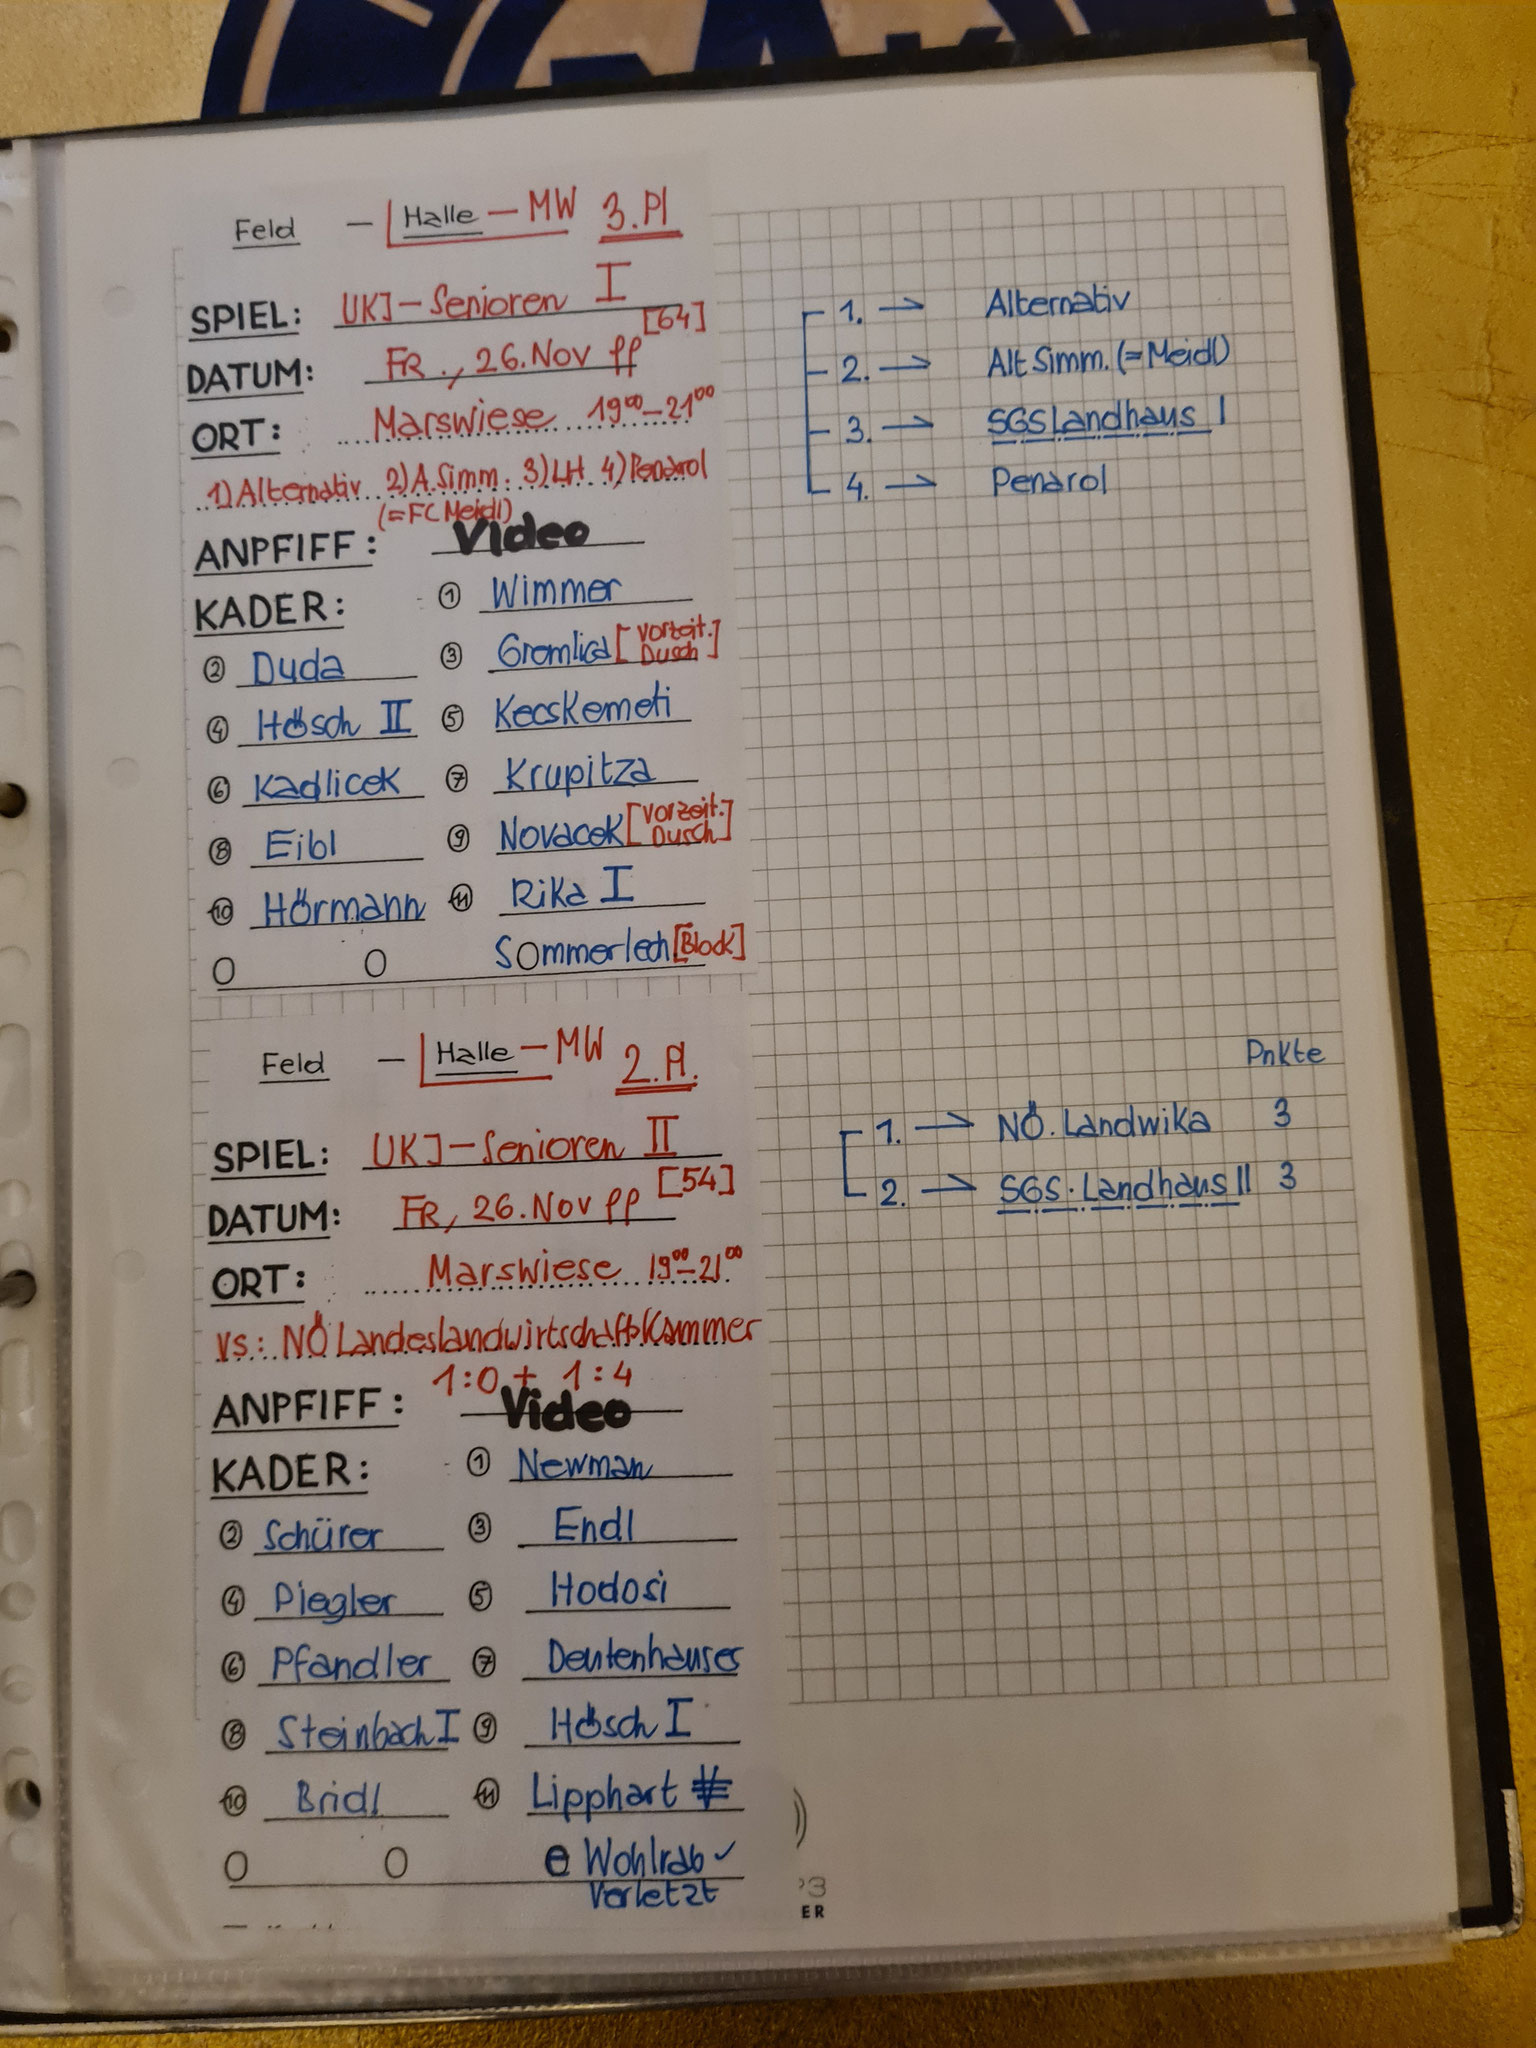 GAK
Feld - Halle - MW 3.Pl
SPIEL: UKJ-Senioren I
[64]
DATUM: FR., 26.Nov pp
ORT: Marswiese 19⁰⁰-21⁰⁰
1) Alternativ 2) A.Simm. 3) LH 4) Penarol
(=FC Meidl)
ANPFIFF: Video
KADER: ① Wimmer
② Duda ③ Gromlica [Vorzeit. Dusch]
④ Hösch II ⑤ Kecskemeti
⑥ Kadlicek ⑦ Krupitza
⑧ Eibl ⑨ Novacek [Vorzeit. Dusch]
⑩ Hörmann ⑪ Rika I
O O Sommerlech [Block]
1. → Alternativ
2. → Alt Simm. (=Meidl)
3. → SGS Landhaus I
4. → Penarol
Feld - Halle - MW 2.Pl.
SPIEL: UKJ-Senioren II
[54]
DATUM: FR, 26.Nov pp
ORT: Marswiese 19⁰⁰-21⁰⁰
vs.: NÖ Landeslandwirtschaftskammer
1:0 + 1:4
ANPFIFF: Video
KADER: ① Newman
② Schürer ③ Endl
④ Piegler ⑤ Hodosi
⑥ Pfandler ⑦ Deutenhauser
⑧ Steinbach I ⑨ Hösch I
⑩ Bridl ⑪ Lipphart #
O O e Wohlrab ✓
Verletzt
Pnkte
1. → NÖ. Landwika 3
2. → SGS. Landhaus II 3
P3
ER